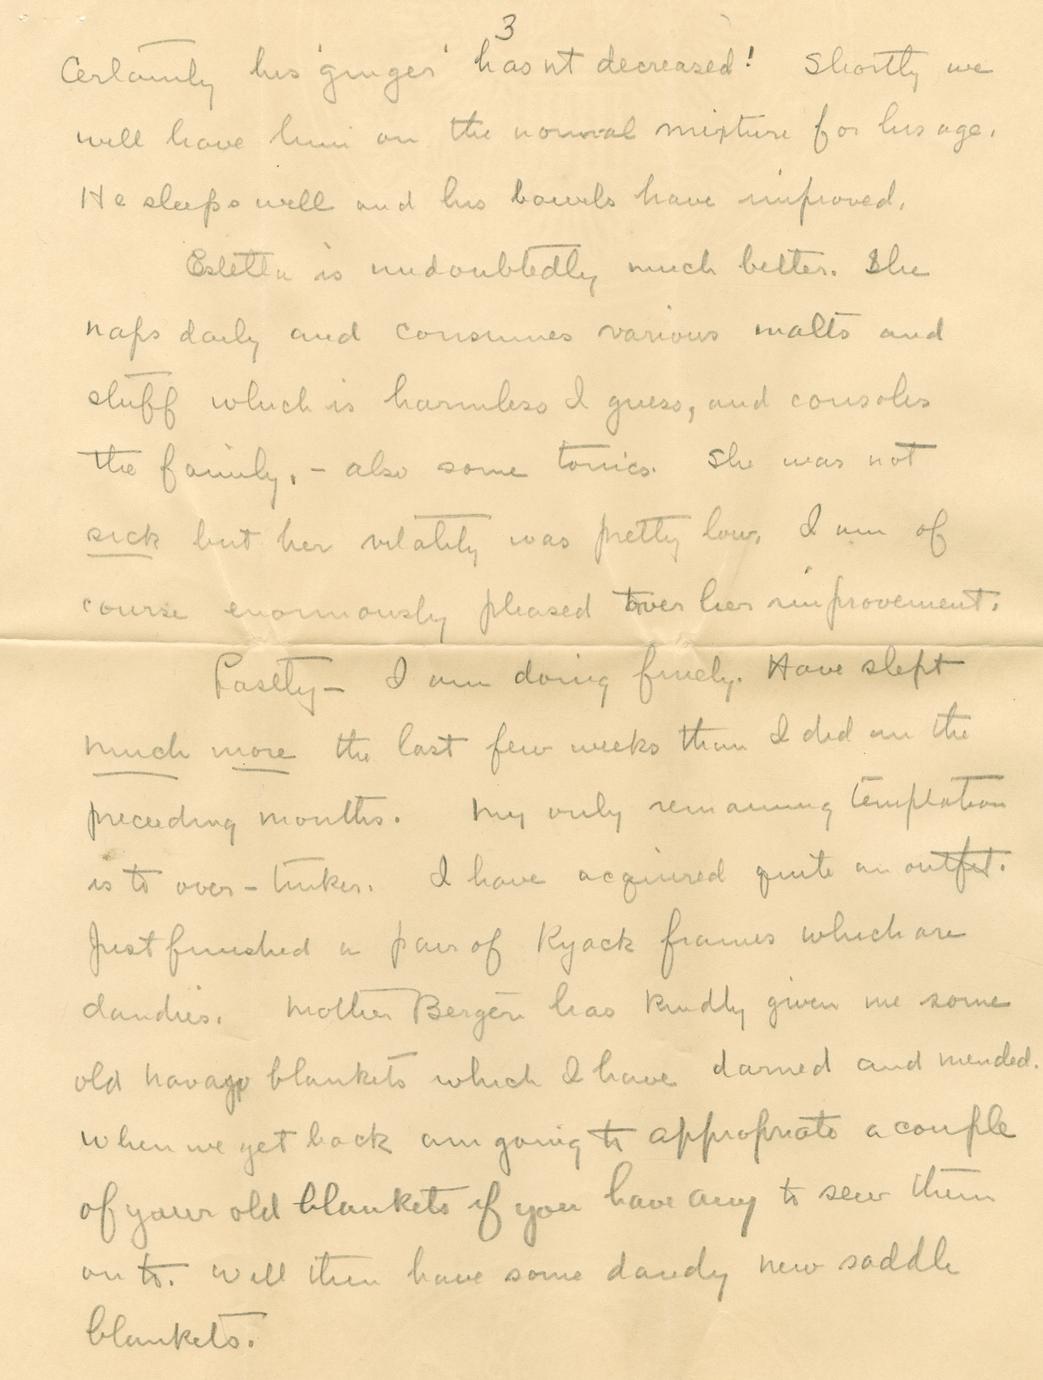 3
Certainly his 'ginger' hasnt decreased! Shortly we
will have him on the normal mixture for his age.
He sleeps well and his bowels have improved.
Esletta is undoubtedly much better. She
naps daily and consumes various malts and
stuff which is harmless I guess, and consoles
the family, - also some tonics. She was not
sick but her vitality was pretty low. I am of
course enormously pleased over her improvement.
Lastly - I am doing finely. Have slept
much more the last few weeks than I did in the
preceeding months. My only remaining temptation
is to over-tinker. I have acquired quite an outfit.
Just finished a pair of Kyack frames which are
dandies. Mother Bergen has kindly given me some
old navajo blankets which I have darned and mended.
When we get back am going to appropriate a couple
of your old blankets if you have any to sew them
on to. Will then have some dandy new saddle
blankets.